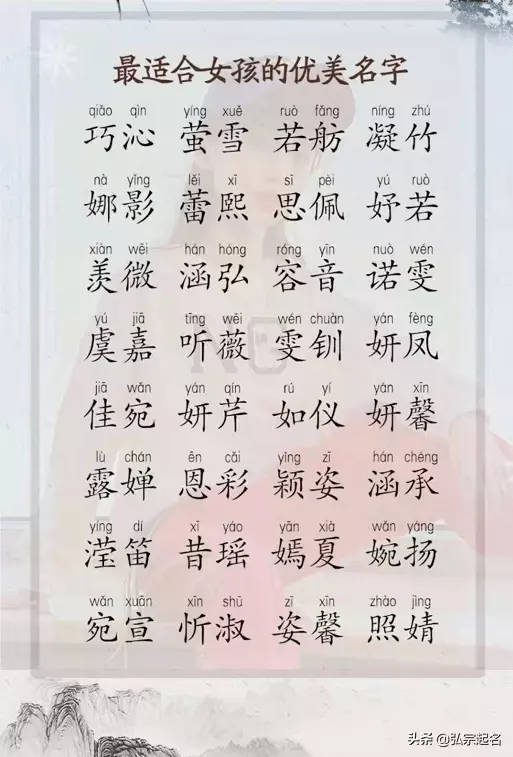 最适合女孩的优美名字
qiǎo qìn yíng xuě ruò fǎng níng zhú
巧沁 萤雪 若舫 凝竹
nà yǐng lěi xī sī pèi yú ruò
娜影 蕾熙 思佩 妤若
xiàn wēi hán hóng róng yīn nuò wén
羡微 涵弘 容音 诺雯
yú jiā tīng wēi wén chuàn yán fèng
虞嘉 听薇 雯钏 妍凤
jiā wǎn yán qín rú yí yán xīn
佳宛 妍芹 如仪 妍馨
lù chán ēn cǎi yǐng zī hán chéng
露婵 恩彩 颖姿 涵承
yíng dí xī yáo yān xià wǎn yáng
滢笛 昔瑶 嫣夏 婉扬
wǎn xuān xīn shū zī xīn zhào jìng
宛宣 忻淑 姿馨 照婧
头条 @弘宗起名